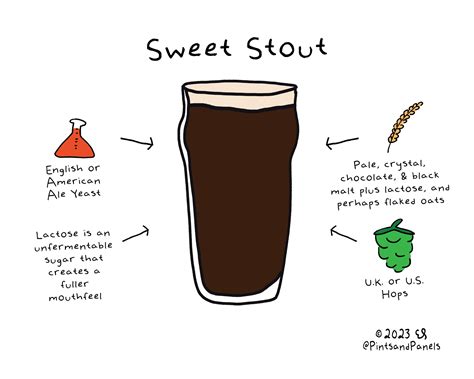 Sweet Stout
English or
American
Ale Yeast
Pale, crystal,
chocolate, & black
malt plus lactose, and
perhaps flaked oats
Lactose is an
unfermentable
sugar that
creates a
fuller
mouthfeel
U.K. or U.S.
Hops
© 2023 ES
@PintsandPanels